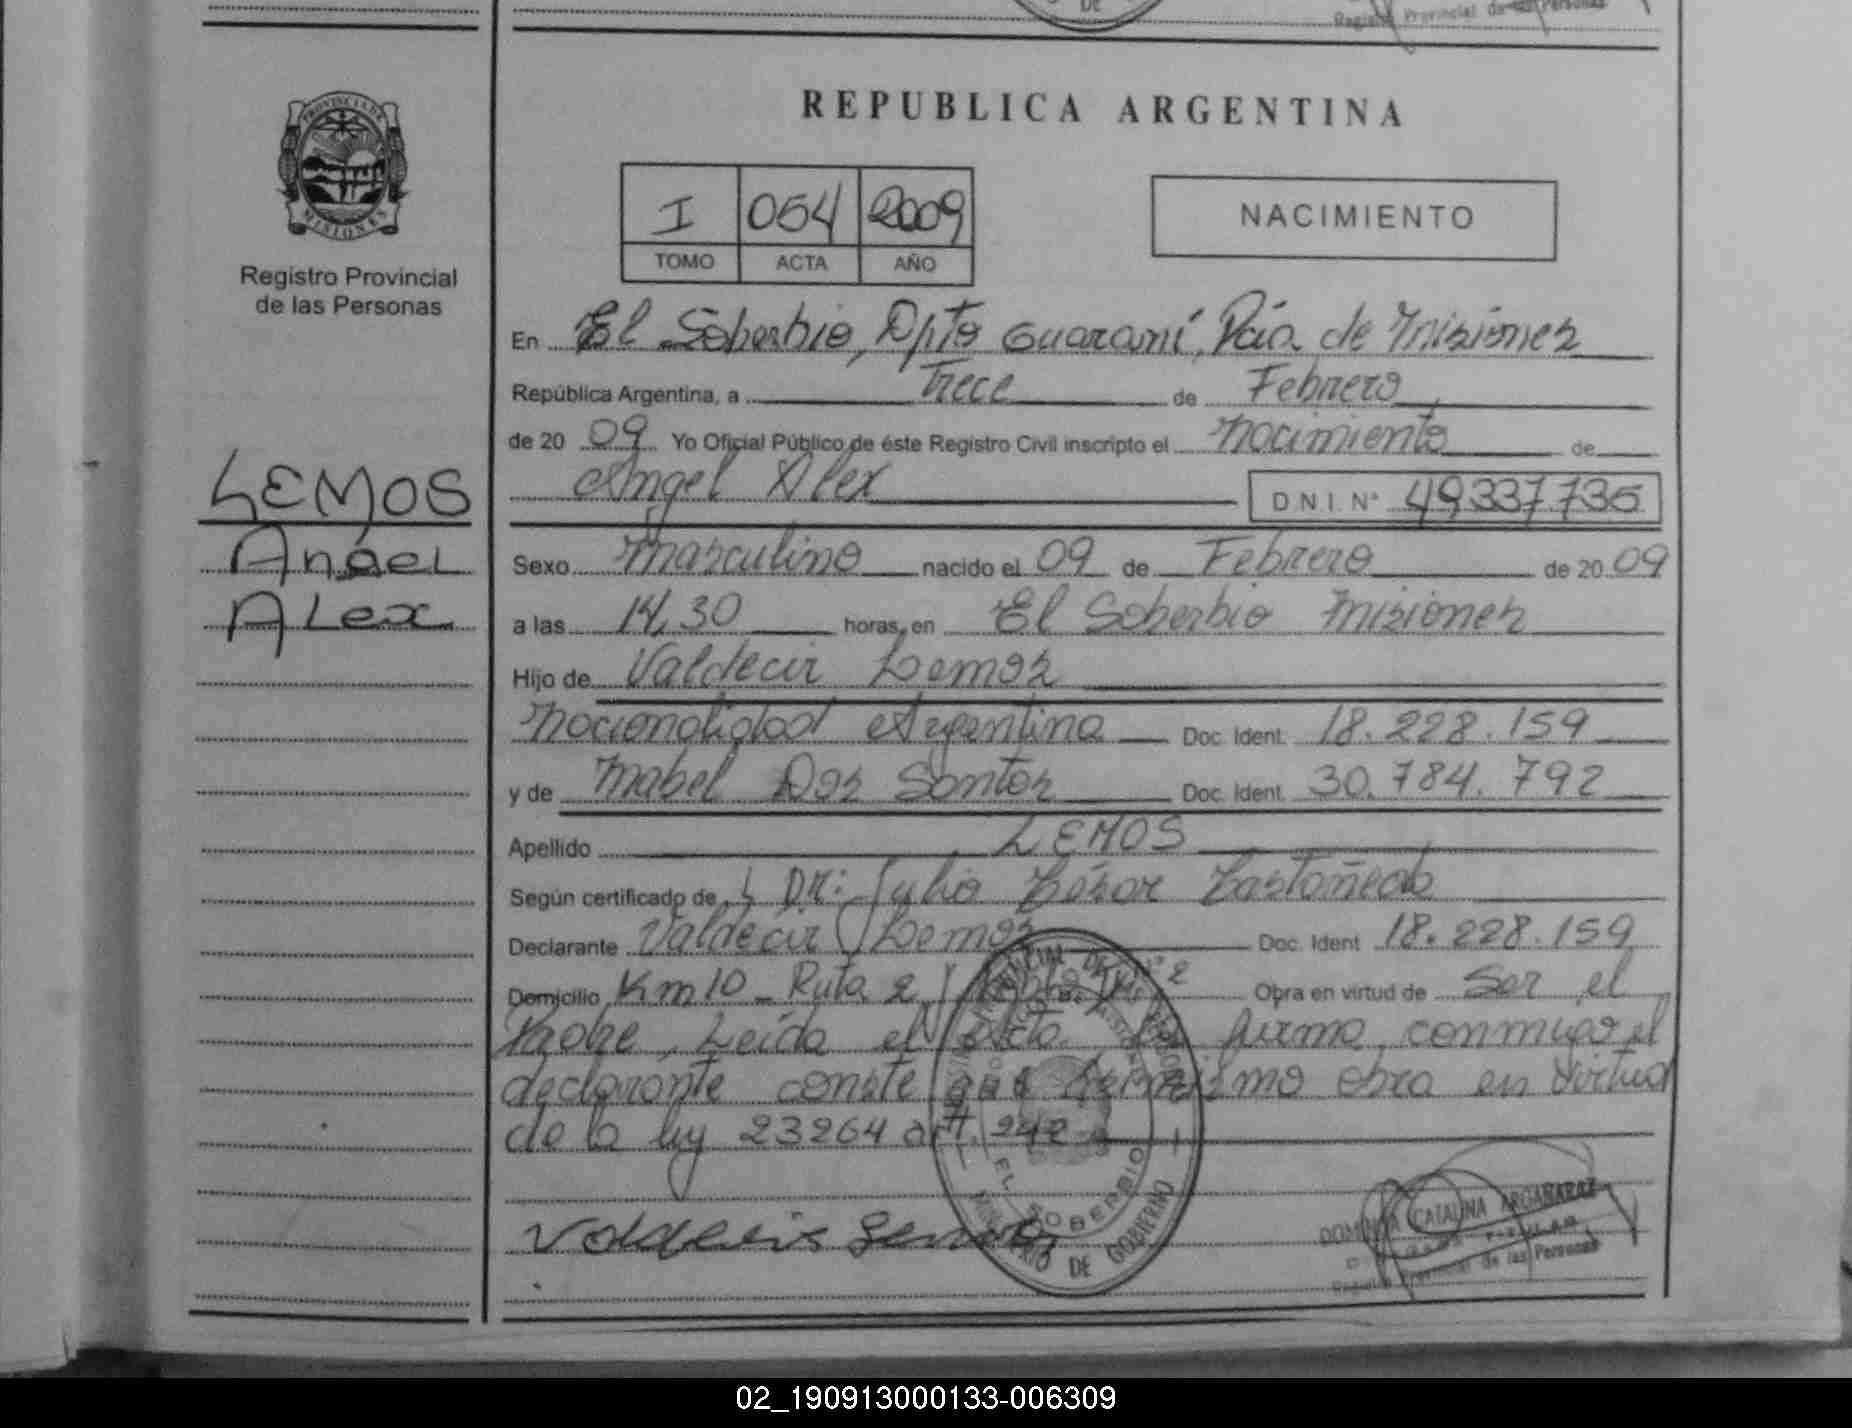 REPUBLICA ARGENTINA
PROVINCIA DE MISIONES
Registro Provincial
de las Personas
I 054 2009
TOMO ACTA AÑO
NACIMIENTO
En El Soberbio, Dpto Guaraní, Pcia de Misiones
República Argentina, a Trece de Febrero
de 20 09 Yo Oficial Público de éste Registro Civil inscripto el Nacimiento de
Angel Alex D.N.I. Nº 49337735
LEMOS
Angel
Alex
Sexo Masculino nacido el 09 de Febrero de 20 09
a las 14,30 horas, en El Soberbio Misiones
Hijo de Valdecir Lemos
Nacionalidad Argentina Doc. Ident. 18.228.159
y de Mabel Dos Santos Doc. Ident. 30.784.792
Apellido LEMOS
Según certificado de L DR: Julio César Castañeda
Declarante Valdecir Lemos Doc. Ident 18.228.159
Domicilio Km10 - Ruta 2 Nº 2 Obra en virtud de Ser el
Padre, Leída el Acta, la firma conmigo el
declarante conste que asimismo obra en virtud
de la ley 23264 art. 242
EL SOBERBIO
MINISTERIO DE GOBIERNO
CATALINA ARGAÑARAZ
Registro Provincial de las Personas
02_190913000133-006309